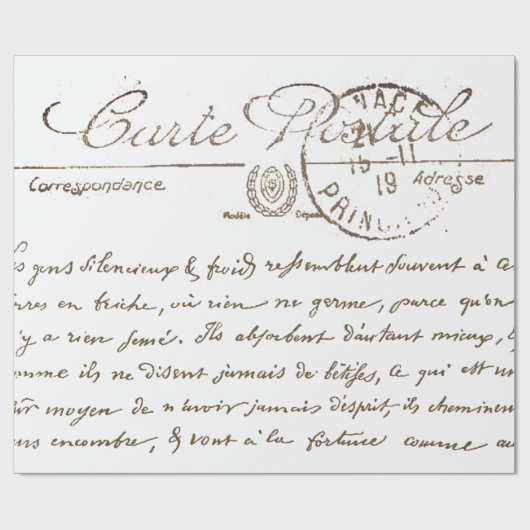 Carte Postale
NACE
15 - 11
19
PRIN
Correspondance
Adresse
Modèle Déposé
es gens silencieux & froids ressemblent souvent à ce
rres en friche, où rien ne germe, parce qu'on
'y a rien semé. Ils absorbent d'autant mieux, &
omme ils ne disent jamais de bêtises, ce qui est un
ûr moyen de n'avoir jamais d'esprit, ils cheminen
ns encombre, & vont à la fortune comme au